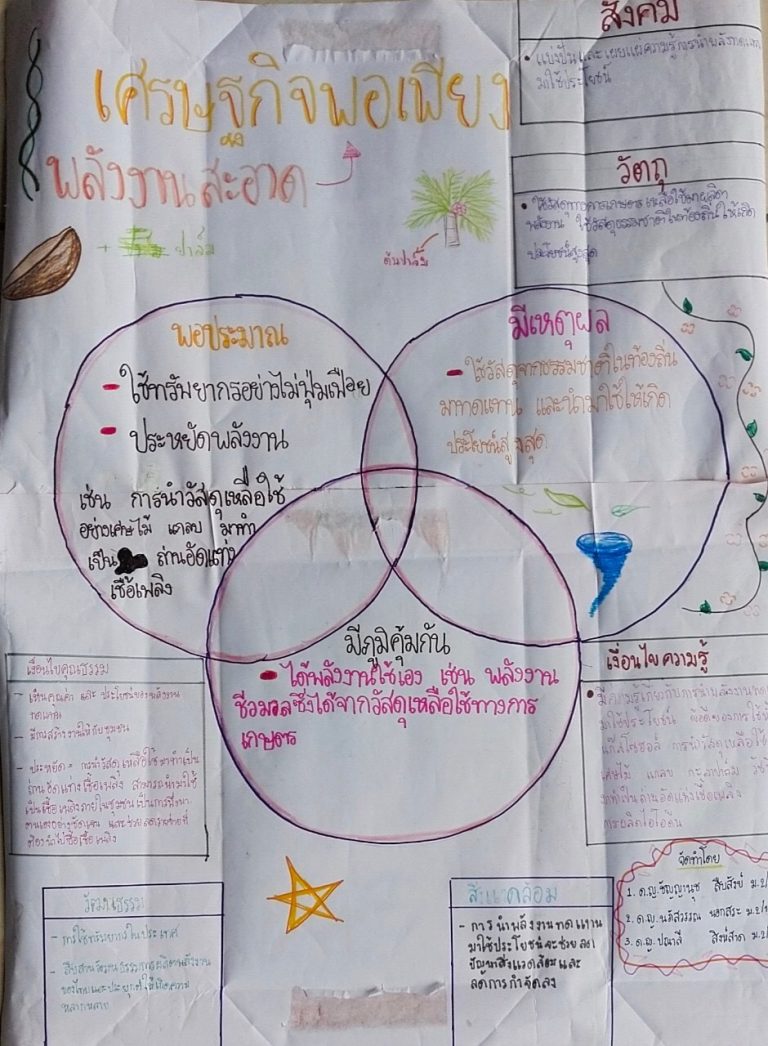 เศรษฐกิจพอเพียง
พลังงานสะอาด
+ ปาล์ม
ต้นปาล์ม
สังคม
• แบ่งปันและเผยแผ่ความรู้การนำพลังทดแทน
มาใช้ประโยชน์
วัตถุ
• ใช้วัสดุทางการเกษตรเหลือใช้มาผลิตา
พลังงาน ใช้วัสดุธรรมชาติในท้องถิ่นให้เกิด
ประโยชน์สูงสุด
พอประมาณ
- ใช้ทรัพยากรอย่างไม่ฟุ่มเฟือย
- ประหยัดพลังงาน
เช่น การนำวัสดุเหลือใช้
อย่างเศษไม้ แกลบ มาทำ
เป็น ถ่านอัดแท่ง
เชื้อเพลิง
มีเหตุผล
- ใช้วัสดุจากธรรมชาติในท้องถิ่น
มาทดแทน และนำมาใช้ให้เกิด
ประโยชน์สูงสุด
มีภูมิคุ้มกัน
- ได้พลังงานใช้เอง เช่น พลังงาน
ชีวมวลซึ่งได้จากวัสดุเหลือใช้ทางการ
เกษตร
เงื่อนไขคุณธรรม
- เห็นคุณค่า และ ประโยชน์ของพลังงาน
ทดแทน
- มีการสร้างงานให้กับชุมชน
- ประหยัด = การนำวัสดุเหลือใช้มาทำเป็น
ถ่านอัดแท่งเชื้อเพลิง สามารถนำมาใช้
เป็นเชื้อเพลิงภายในชุมชน เป็นการพึ่งพา
ตนเองอย่างชัดเจน และช่วยลดรายจ่ายที่
ต้องนำไปซื้อเชื้อเพลิง
เงื่อนไขความรู้
• มีความรู้เกี่ยวกับการนำพลังงานทด
มาใช้ประโยชน์ ข้อดีของการใช้
แก๊สโซฮอล์ การนำวัสดุเหลือใช้
เศษไม้ แกลบ กะลาปาล์ม
มาทำเป็นถ่านอัดแท่งเชื้อเพลิง
การผลิตไบโอดีเซล
วัฒนธรรม
- การใช้ทรัพยากรในประเทศ
- สืบสานวัฒนธรรมการผลิตพลังงาน
ของไทยและประยุกต์ให้เกิดความ
หลากหลาย
สิ่งแวดล้อม
- การนำพลังงานทดแทน
มาใช้ประโยชน์จะช่วยลด
ปัญหาสิ่งแวดล้อมและ
ลดการกำจัดลง
จัดทำโดย
1. ด.ญ.ชัญญานุช ม.2/
2. ด.ญ. ม.2/
3. ด.ญ. ม.2/